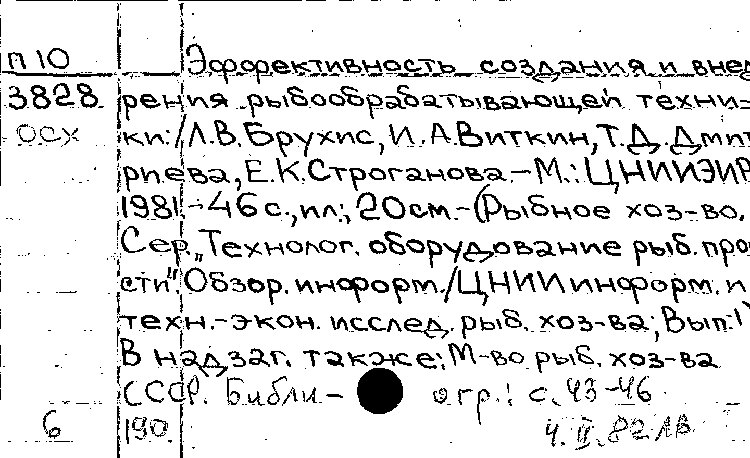 П10 Эффективность создания и внед
3828 рения рыбообрабатывающей техни-
ОСХ ки./Л.В.Брухис, И.А.Виткин, Т.Д.Дмит
риева, Е.К.Строганова.-М.: ЦНИИЭИР
1981.-46с., ил.; 20см.-(Рыбное хоз-во.
Сер.„Технолог. оборудование рыб. про
сти". Обзор. информ./ЦНИИ информ. и
техн.-экон. исслед. рыб. хоз-ва; Вып.1
В надзаг. также: М-во рыб. хоз-ва
СССР. Библи- огр.: с.43-46
6 190. 4.II.82 ЛВ